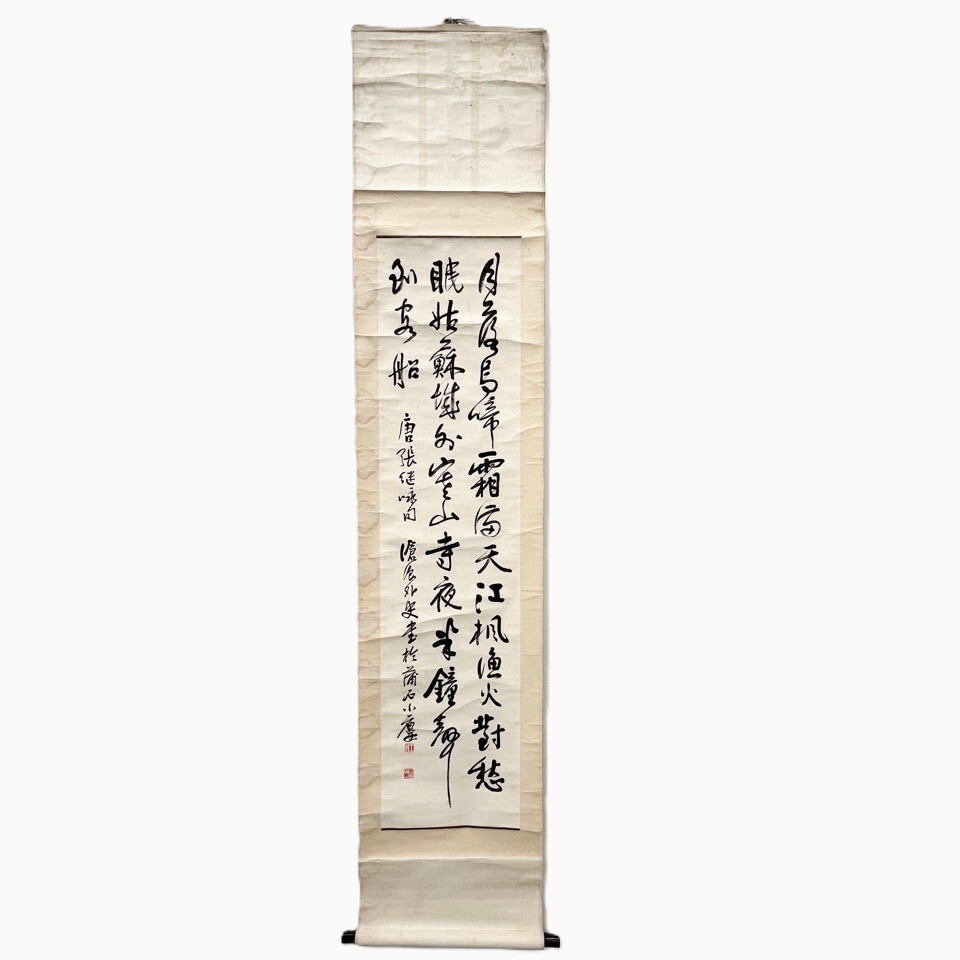 月落烏啼霜滿天江楓漁火對愁
眠姑蘇城外寒山寺夜半鐘聲
到客船
唐張继詠句
滄浪外史書於蒲石小廔